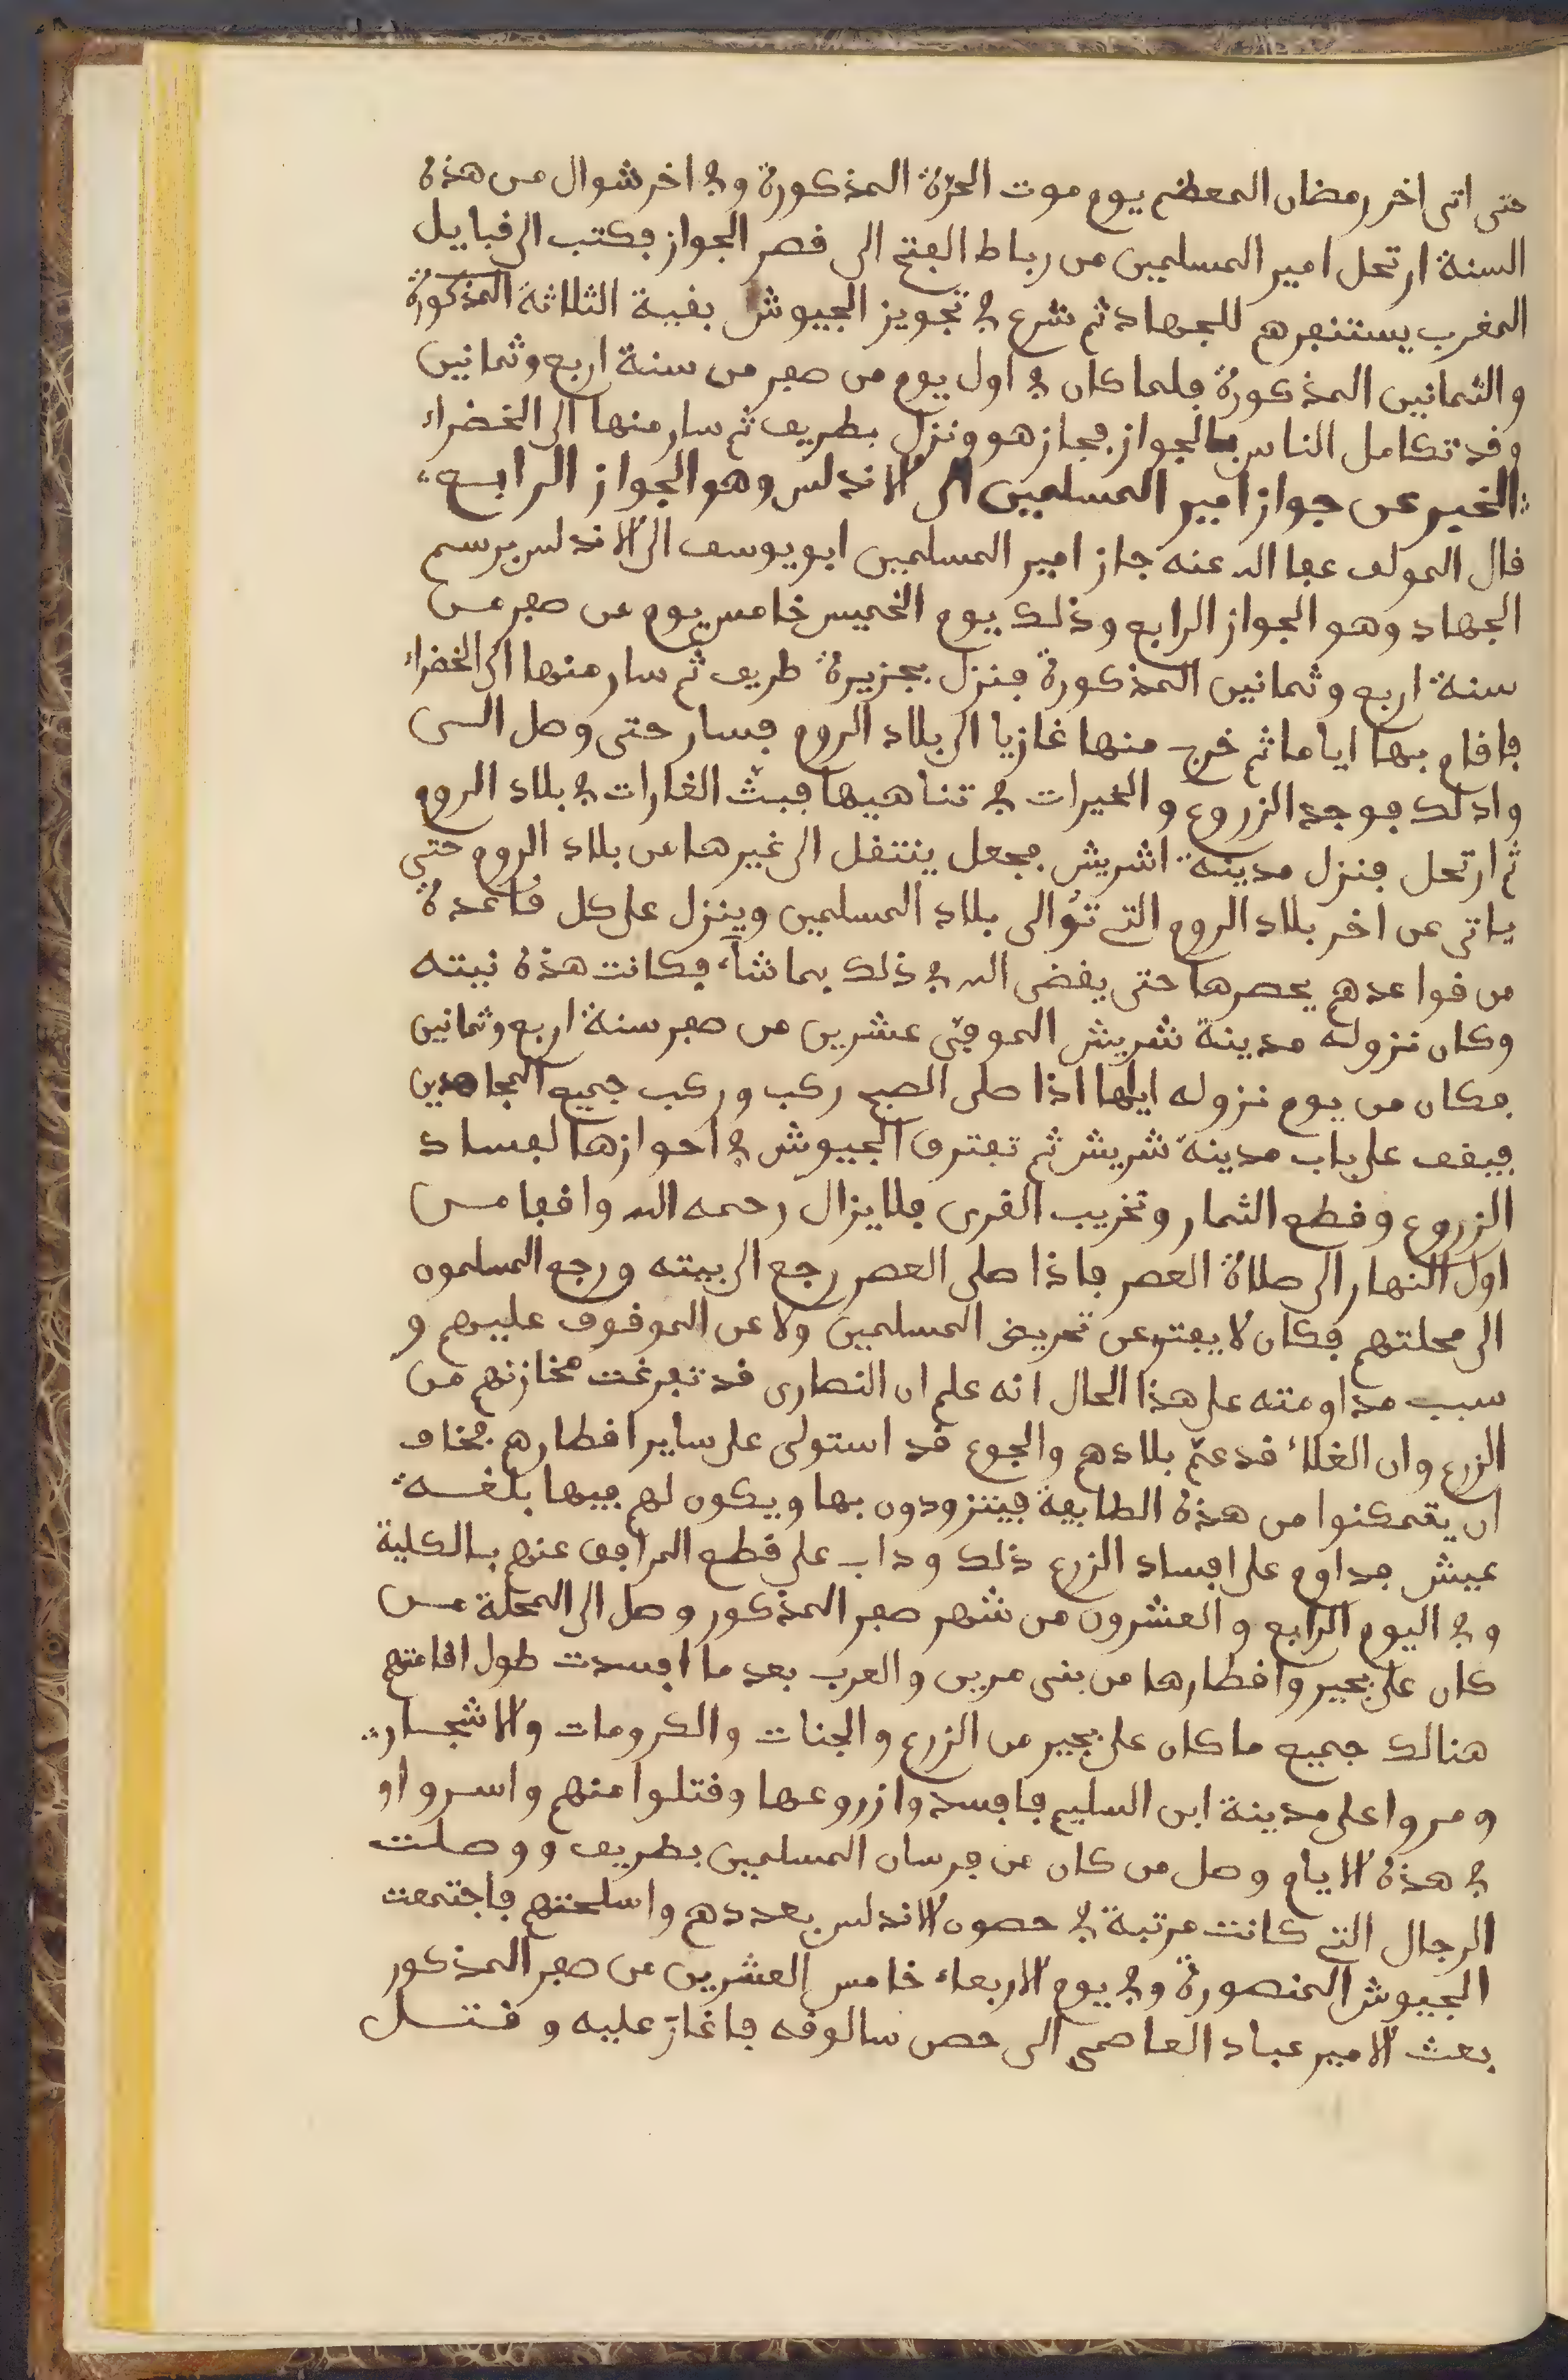 حتى اتى اخر رمضان المعظم يوم موت الحرّة المذكورة وفي اخر شوال من هذه
السنة ارتحل امير المسلمين من رباط الفتح الى قصر الجواز فكتب الى قبايل
المغرب يستنفرهم للجهاد ثم شرع في تجويز الجيوش بقية الثلاثة المذكورة
والثمانين المذكورة فلما كان في اول يوم من صفر من سنة اربع وثمانين
وقد تكامل الناس بالجواز فجاز هو ونزل بطريف ثم سار منها الى الخضراء
الخبر عن جواز امير المسلمين الى الاندلس وهو الجواز الرابع
قال المولف عفا الله عنه جاز امير المسلمين ابو يوسف الى الاندلس برسم
الجهاد وهو الجواز الرابع وذلك يوم الخميس خامس يوم من صفر من
سنة اربع وثمانين المذكورة فنزل بجزيرة طريف ثم سار منها الى الخضراء
فاقام بها اياما ثم خرج منها غازيا الى بلاد الروم فسار حتى وصل الى
واد لك فوجد الزروع والخيرات في تناهيها فبثّ الغارات في بلاد الروم
ثم ارتحل فنزل مدينة اشريش فجعل ينتقل الى غيرها من بلاد الروم حتى
ياتى عن اخر بلاد الروم التي تؤالى بلاد المسلمين وينزل على كل قاعدة
من قواعدهم يحصرها حتى يقضى الله في ذلك بما شاء فكانت هذه نيته
وكان نزوله مدينة شريش الموفي عشرين من صفر سنة اربع وثمانين
فكان من يوم نزوله ايلها اذا صلى الصبح ركب وركب جميع المجاهدين
فيقف على باب مدينة شريش ثم تفترق الجيوش في احوازها لفساد
الزروع وقطع الثمار وتخريب القرى فلا يزال رحمه الله واقفا من
اول النهار الى صلاة العصر فاذا صلى العصر رجع الى بيته ورجع المسلمون
الى محلتهم فكان لا يفتر عن تحريض المسلمين ولا عن الموقوف عليهم و
سبب مداومته على هذا الحال انه علم ان النصارى قد تفرغت مخازنهم من
الزرع وان الغلاء قد عمّ بلادهم والجوع قد استولى على ساير اقطارهم فخاف
ان يتمكنوا من هذه الطايفة فيتزودون بها ويكون لهم فيها بلغة
عيش فداوم على افساد الزرع ذلك وداب على قطع المرافق عنهم بالكلية
وفي اليوم الرابع والعشرون من شهر صفر المذكور وصل الى المحلة من
كان على بجير واقطارها من بنى مرين والعرب بعد ما افسدت طول اقامتهم
هنالك جميع ما كان على بجير من الزرع والجنات والكرومات والاشجار
ومروا على مدينة ابن السليم فافسدوا زروعها وقتلوا منهم واسروا و
في هذه الايام وصل من كان من فرسان المسلمين بطريف ووصلت
الرجال التي كانت مرتبة في حصون الاندلس بعددهم واسلحتهم فاجتمعت
الجيوش المنصورة وفي يوم الاربعاء خامس العشرين من صفر المذكور
بعث الامير عباد العاصمى الى حصن سالوقه فاغارّ عليه وقتل